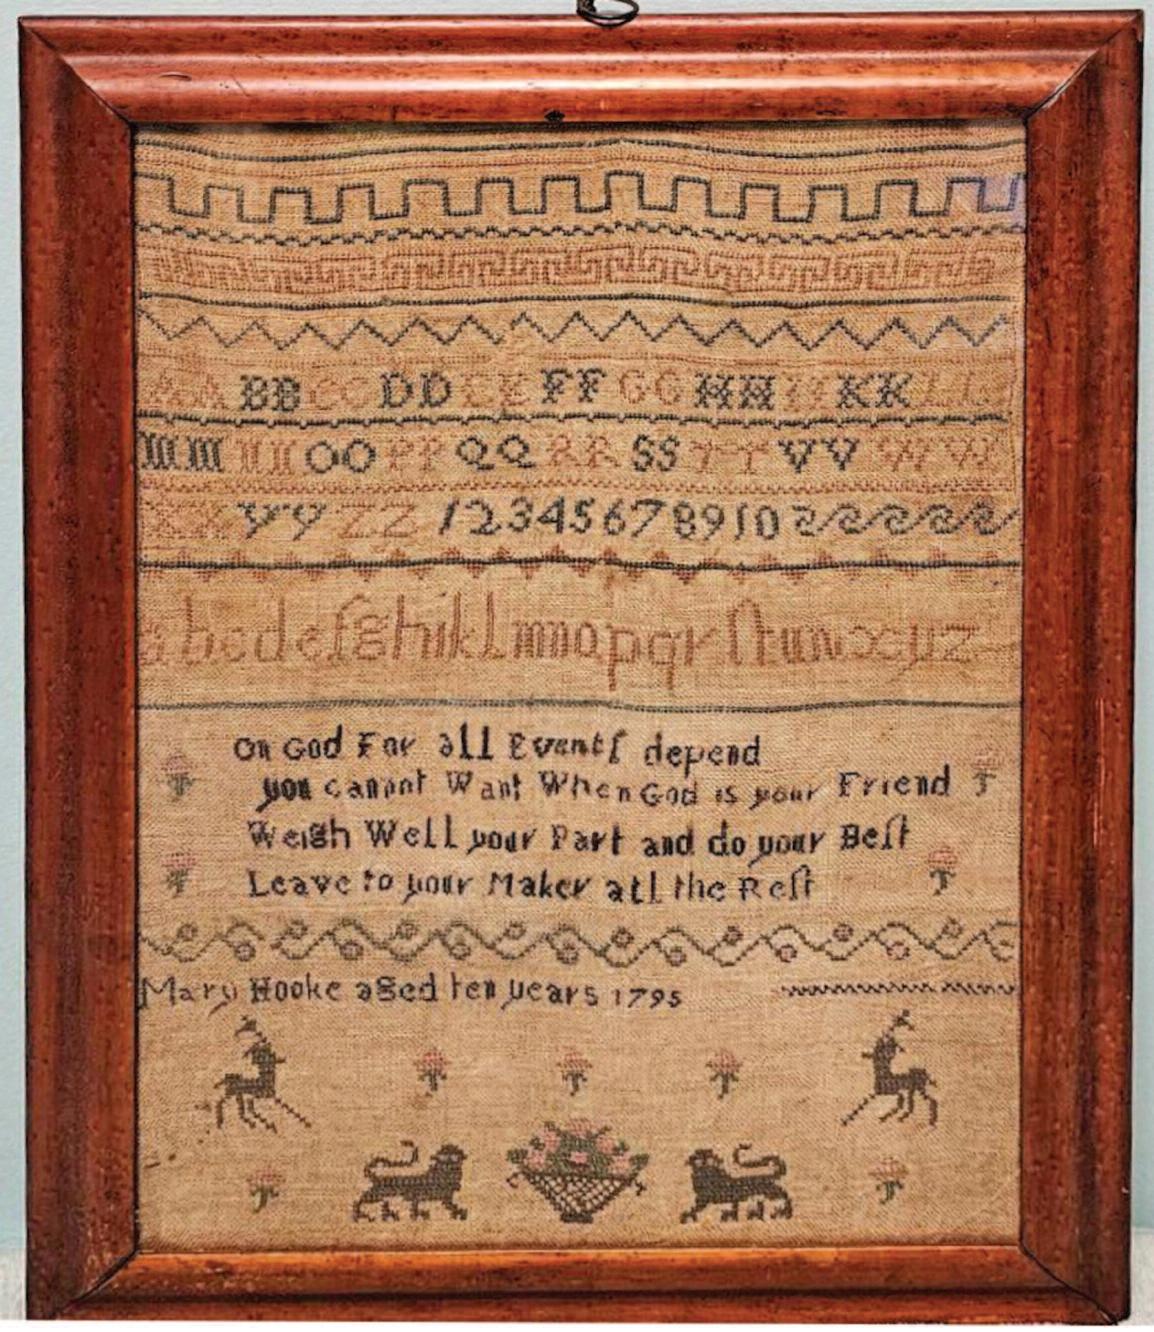 AABBCCDDEEFFGGHHIIKKLL
MMNNOOPPQQRRSSTTVVWW
XXYYZZ 12345678910
abcdefghiklmnopqrſtuvxyz
On God For all Eventſ depend
you cannot Want When God is your Friend
Weigh Well your Part and do your Beſt
Leave to your Maker all the Reſt
Mary Hooke aged ten years 1795